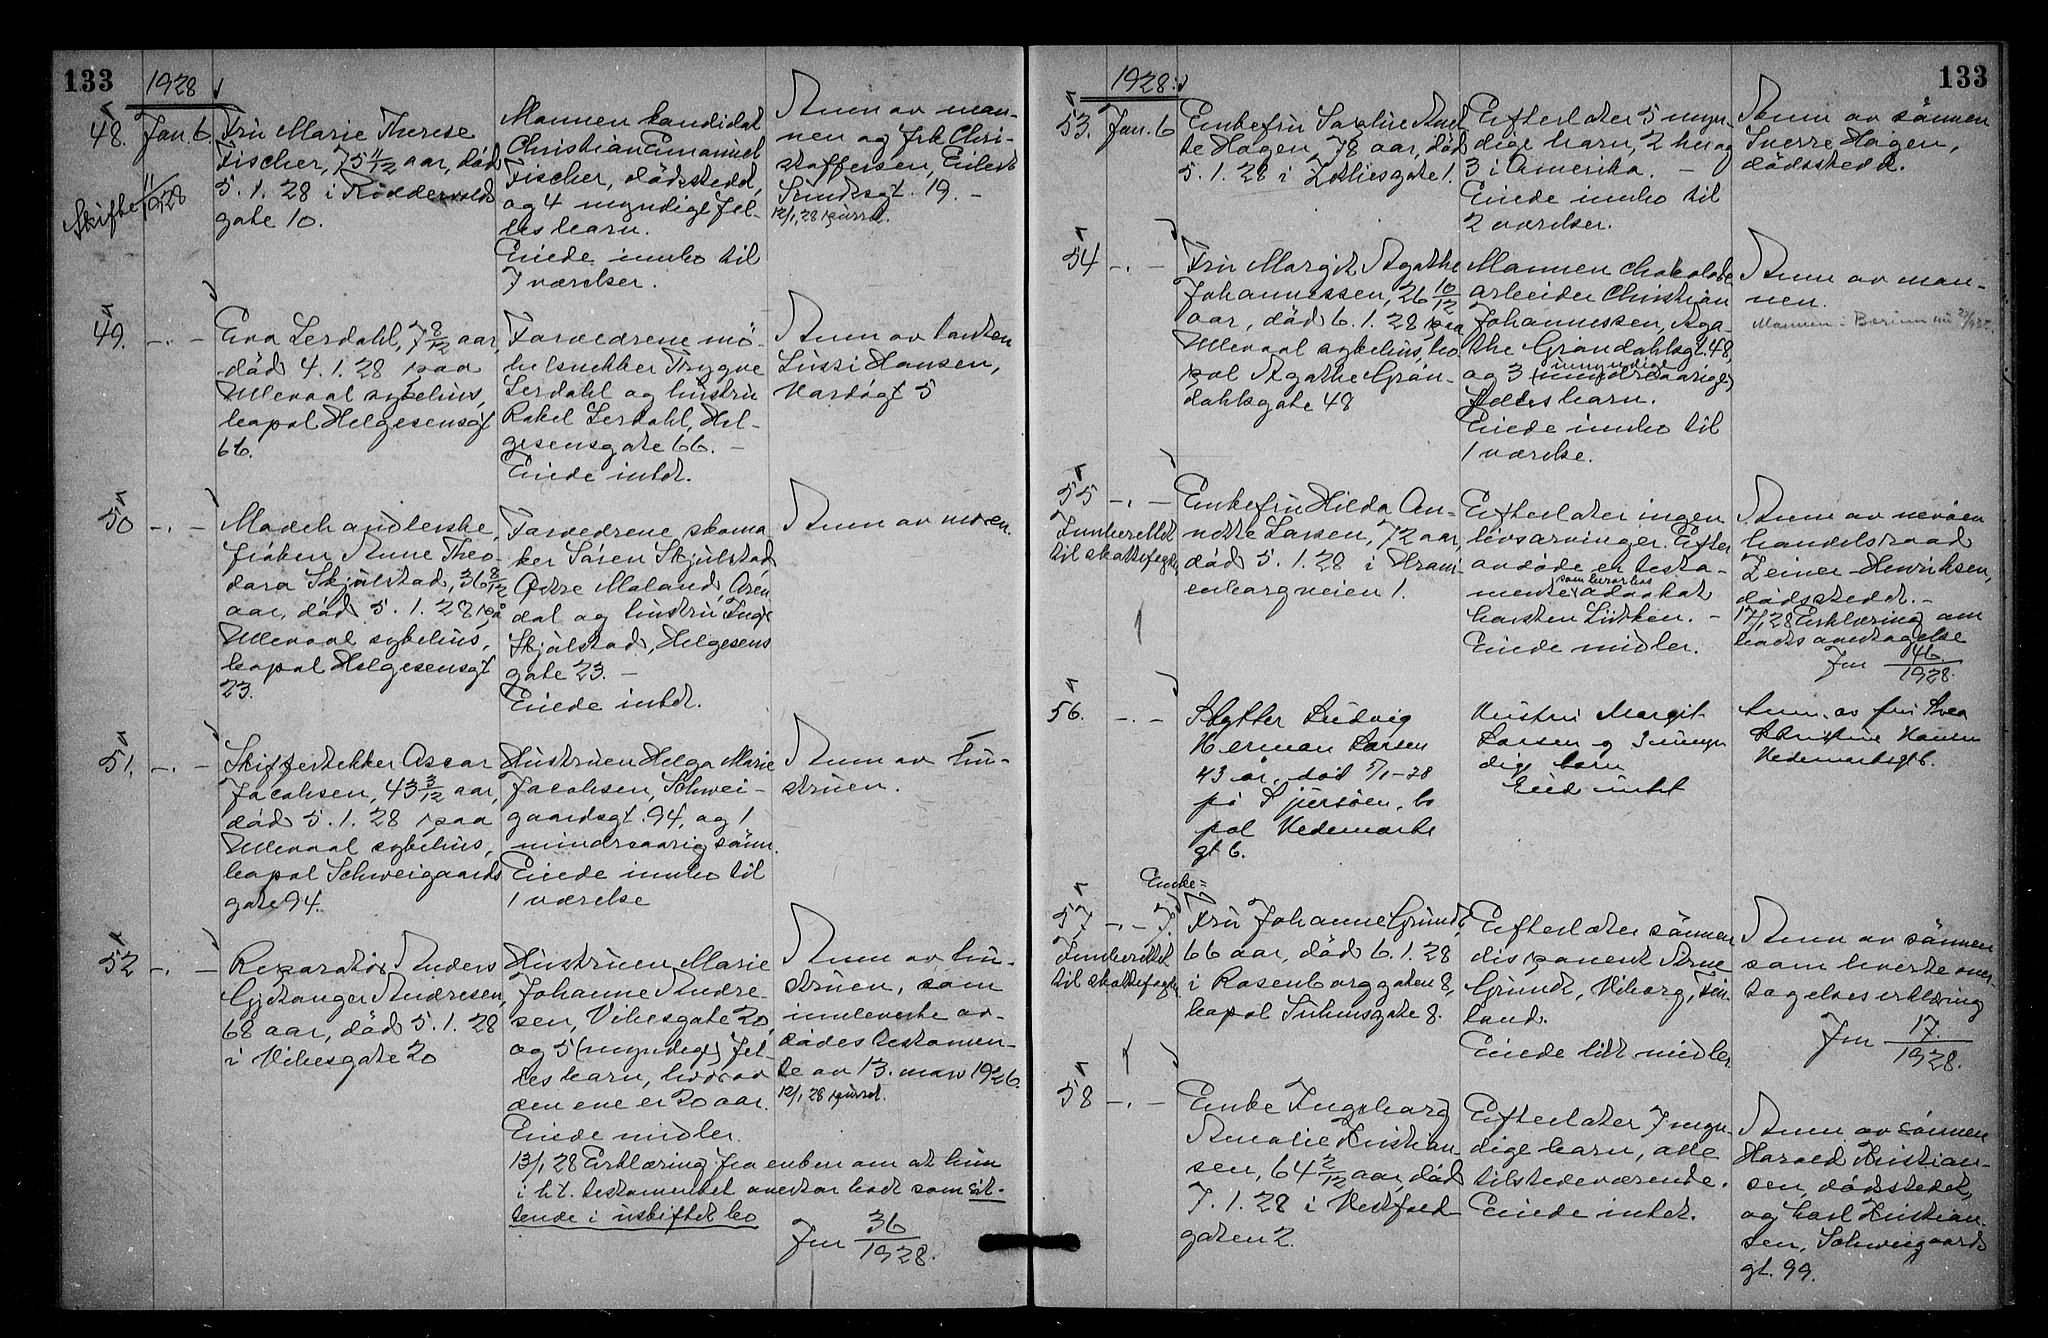 133
1928
48. Jan. 6.
Skifte 11/1928
Fru Marie Therese
Fischer, 75 11/12 aar, død
5. 1. 28 i Røddervolds
gate 10.
Mannen kandidat
Christian Emanuel
Fischer, dødsstedet,
og 4 myndige fel-
les barn.
Eiede innbo til
7 værelser.
Anm av man-
nen og frk Chri-
stoffersen, Eilert
Sundtsgt. 19. -
12/1 28 kunst.
49. -.-
Eva Lerdahl, 7 8/12 aar,
død 4. 1. 28 paa
Ullevaal sykehus,
bopal Helgesensgt
66.
Forældrene mø-
belsnekker Trygve
Lerdahl og hustru
Rakel Lerdahl, Hel-
gesensgate 66. -
Eiede intet.
Anm av tanten
Lussi Hansen,
Vardøgt 5
50 -.-
Modehandlerske,
frøken Anne Theo-
dora Skjulstad, 36 8/12
aar, død 5. 1. 28 på
Ullevaal sykehus,
bopal Helgesensgt
23.
Forældrene skoma
ker Søren Skjulstad
Østre Moland, Aren
dal og hustru Inge
Skjulstad, Helgesens
gate 23. -
Eiede intet.
Anm av moren.
51. -.-
Skiffertekker Oscar
Jacobsen, 43 3/12 aar,
død 5. 1. 28 paa
Ullevaal sykehus,
bopal Schweigaards
gate 94.
Hustruen Helga Marie
Jacobsen, Schwei-
gaardsgt. 94, og 1
mindreaarig sønn.
Eiede innbo til
1 værelse
Anm av hu-
struen.
52 -.-
Reparatør Anders
Gjetanger Andresen,
68 aar, død 5. 1. 28
i Vibesgate 20
Hustruen Marie
Johanne Andre-
sen, Vibesgate 20,
og 5 (myndige) fel-
les barn, hvorav
den ene er 20 aar.
Eiede midler.
13/1 28 Erklæring fra enken om at hun
i h.t. testamentet overtar boet som sit-
tende i uskiftet bo
Anm av hu-
struen, som
innleverte av-
dødes testamen-
te av 13. mars 1926.
12/1 28 kunst.
Jnr 36/1928.
133
1928.
53. Jan. 6
Enkefru
te Hagen, 78 aar, død
5. 1. 28 i Zetlitzgate 1.
Efterlater 5 myn-
dige barn, 2 her og
3 i Amerika. -
Eiede innbo til
2 værelser.
Anm av sønnen
Sverre Hagen,
dødsstedet.
54 -.-
Fru Margit Agathe
Johannessen, 26 10/12
aar, død 6. 1. 28 paa
Ullevaal sykehus, bo
pal Agathe Grøn-
dahlsgate 48
Mannen chokolade
arbeider Christian
Johannessen, Aga-
the Grøndahlsgt. 48
og 3 umyndige
felles barn.
Eiede innbo til
1 værelse.
Anm av man-
nen.
Mannen - Bærum
55 -.-
Innberettet
til skattefogden
Enkefru Hilda An-
nette Larsen, 72 aar,
død 5. 1. 28 i Hram-
enborgveien 1.
Efterlater ingen
livsarvinger. Efter
avdøde er testa-
mente som beror hos advokat
Carsten Lütken. -
Eiede midler.
Anm av nevøen
handelsraad
Zeiner-Henriksen,
dødsstedet. -
17/1 28 Erklæring om
boets overtagelse
Jnr 46/1928.
56. -.-
Skytter Ludvig
Herman Larsen
43 år, død 5/1-28
på Sjursøen, bo
pal Hedemarks
gt 6.
Hustru Margit
Larsen og 3 umyn
dige barn
Eied intet
Anm. av fru Thea
Kristine Hansen
Hedemarksgt 6.
57 -.- 7.
Innberettet
til skattefogden
Enke-
Fru Johanne Grundt,
66 aar, død 6. 1. 28
i Rosenborggaten 8,
bopal Suhmsgate 8.
Efterlater sønnen
disponent Arne
Grundt, Viborg, Fin-
land.
Eiede litt midler
Anm av sønnen
som leverte over-
tagelseserklæring
Jnr 17./1928.
58 -.-
Enke Ingeborg
Amalie Kristian-
sen, 64 2/12 aar, død
7. 1. 28 i Vestfold
gaten 2.
Efterlater 7 myn-
dige barn, alle
tilstedeværende.
Eiede intet.
Anm av sønnen
Harald Kristian-
sen, dødsstedet,
og Carl Kristian-
sen, Schweigaards
gt. 99.